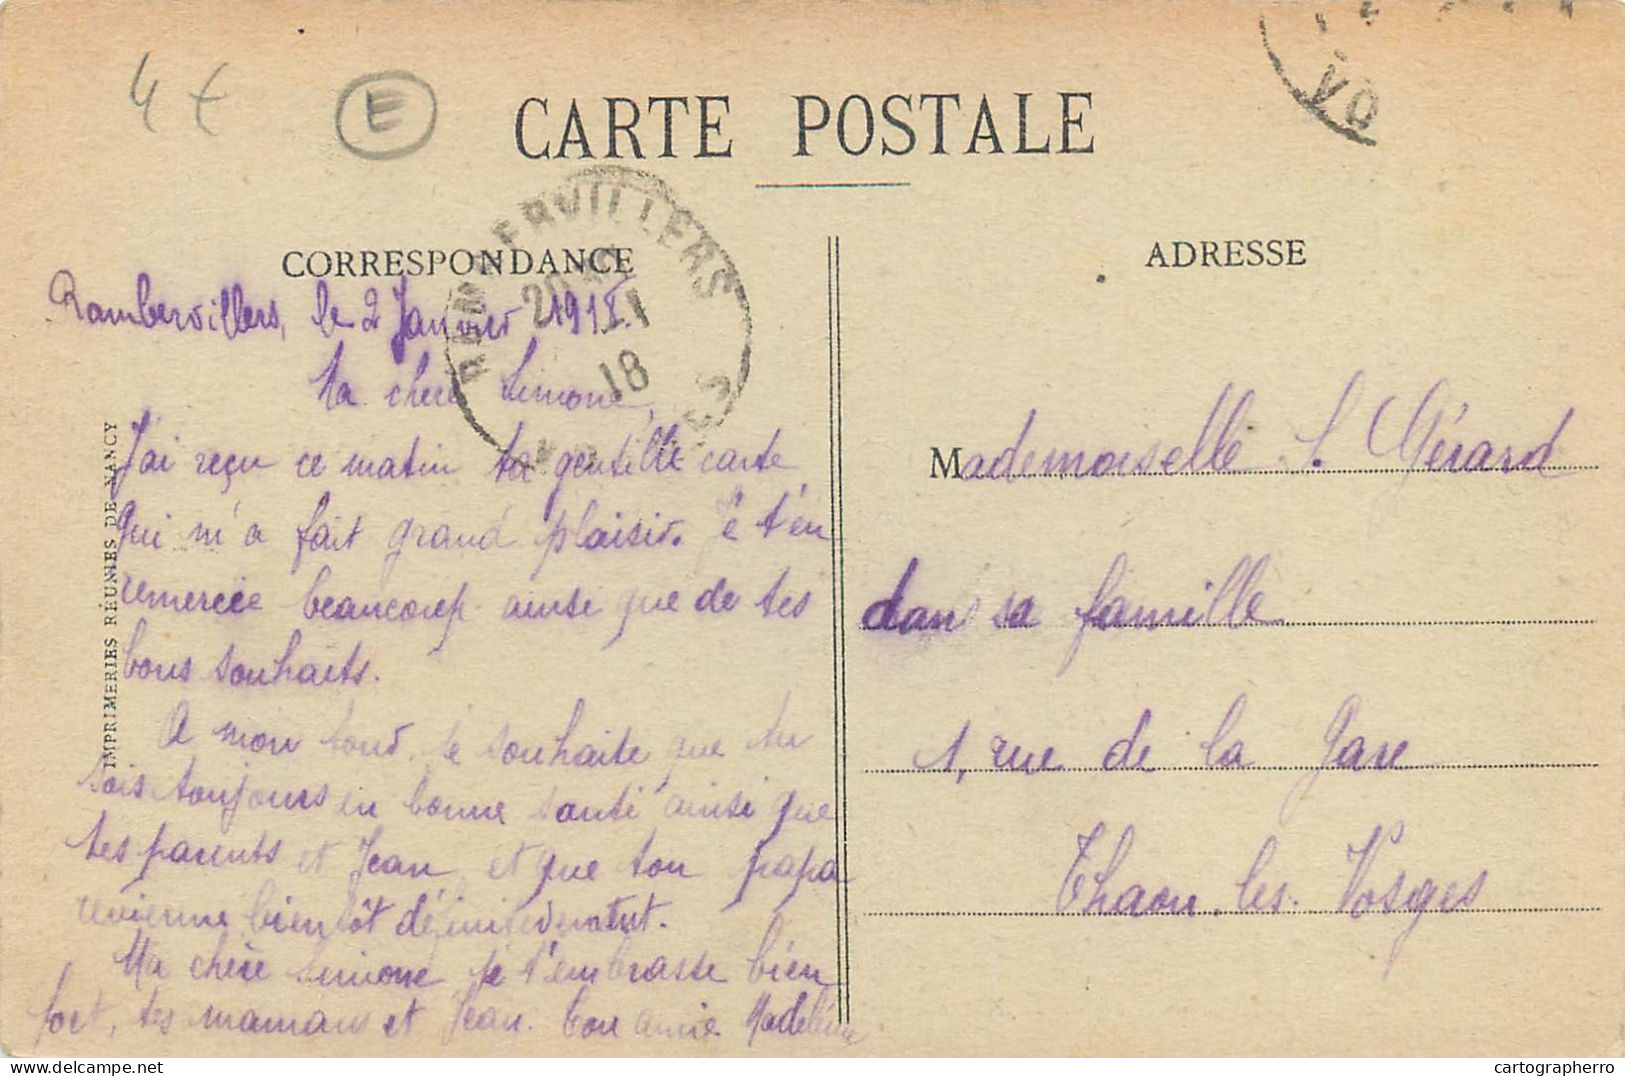 4 €
E
CARTE POSTALE
VO
CORRESPONDANCE
ADRESSE
RAMBERVILLERS
18
VOSGES
IMPRIMERIES RÉUNIES DE NANCY
Rambervillers, le 2 Janvier 191
Ma chère Simone,
J'ai reçu ce matin ta gentille carte
qui m'a fait grand plaisir. Je t'en
remercie beaucoup ainsi que de tes
bons souhaits.
A mon tour je souhaite que tu
sois toujours en bonne santé ainsi que
tes parents et Jean et que ton papa
revienne bientôt définitivement.
Ma chère Simone je t'embrasse bien
fort, tes mamans et Jean. Ton amie Madeleine
Mademoiselle S. Gérard
dans sa famille
1, rue de la Gare
Thaon-les-Vosges
cartographerro